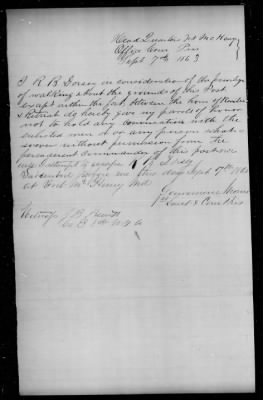 Head Quarters Fort McHenry
Office Com Pris
Sept 7th 1863
I R B Dorsey in consideration of the privilege
of walking about the grounds of this Post
except within the fort, between the hours of Reveille
& Retreat do hereby give my parole of honor
not to hold any conversation with the
enlisted men or any person what-
soever without permission from the
permanent commander of this post nor
attempt to escape R B Dorsey
Subscribed before me this day Sept 7th 1863
at Fort McHenry Md
1st Lieut & Com Pris
Witness J B
Co